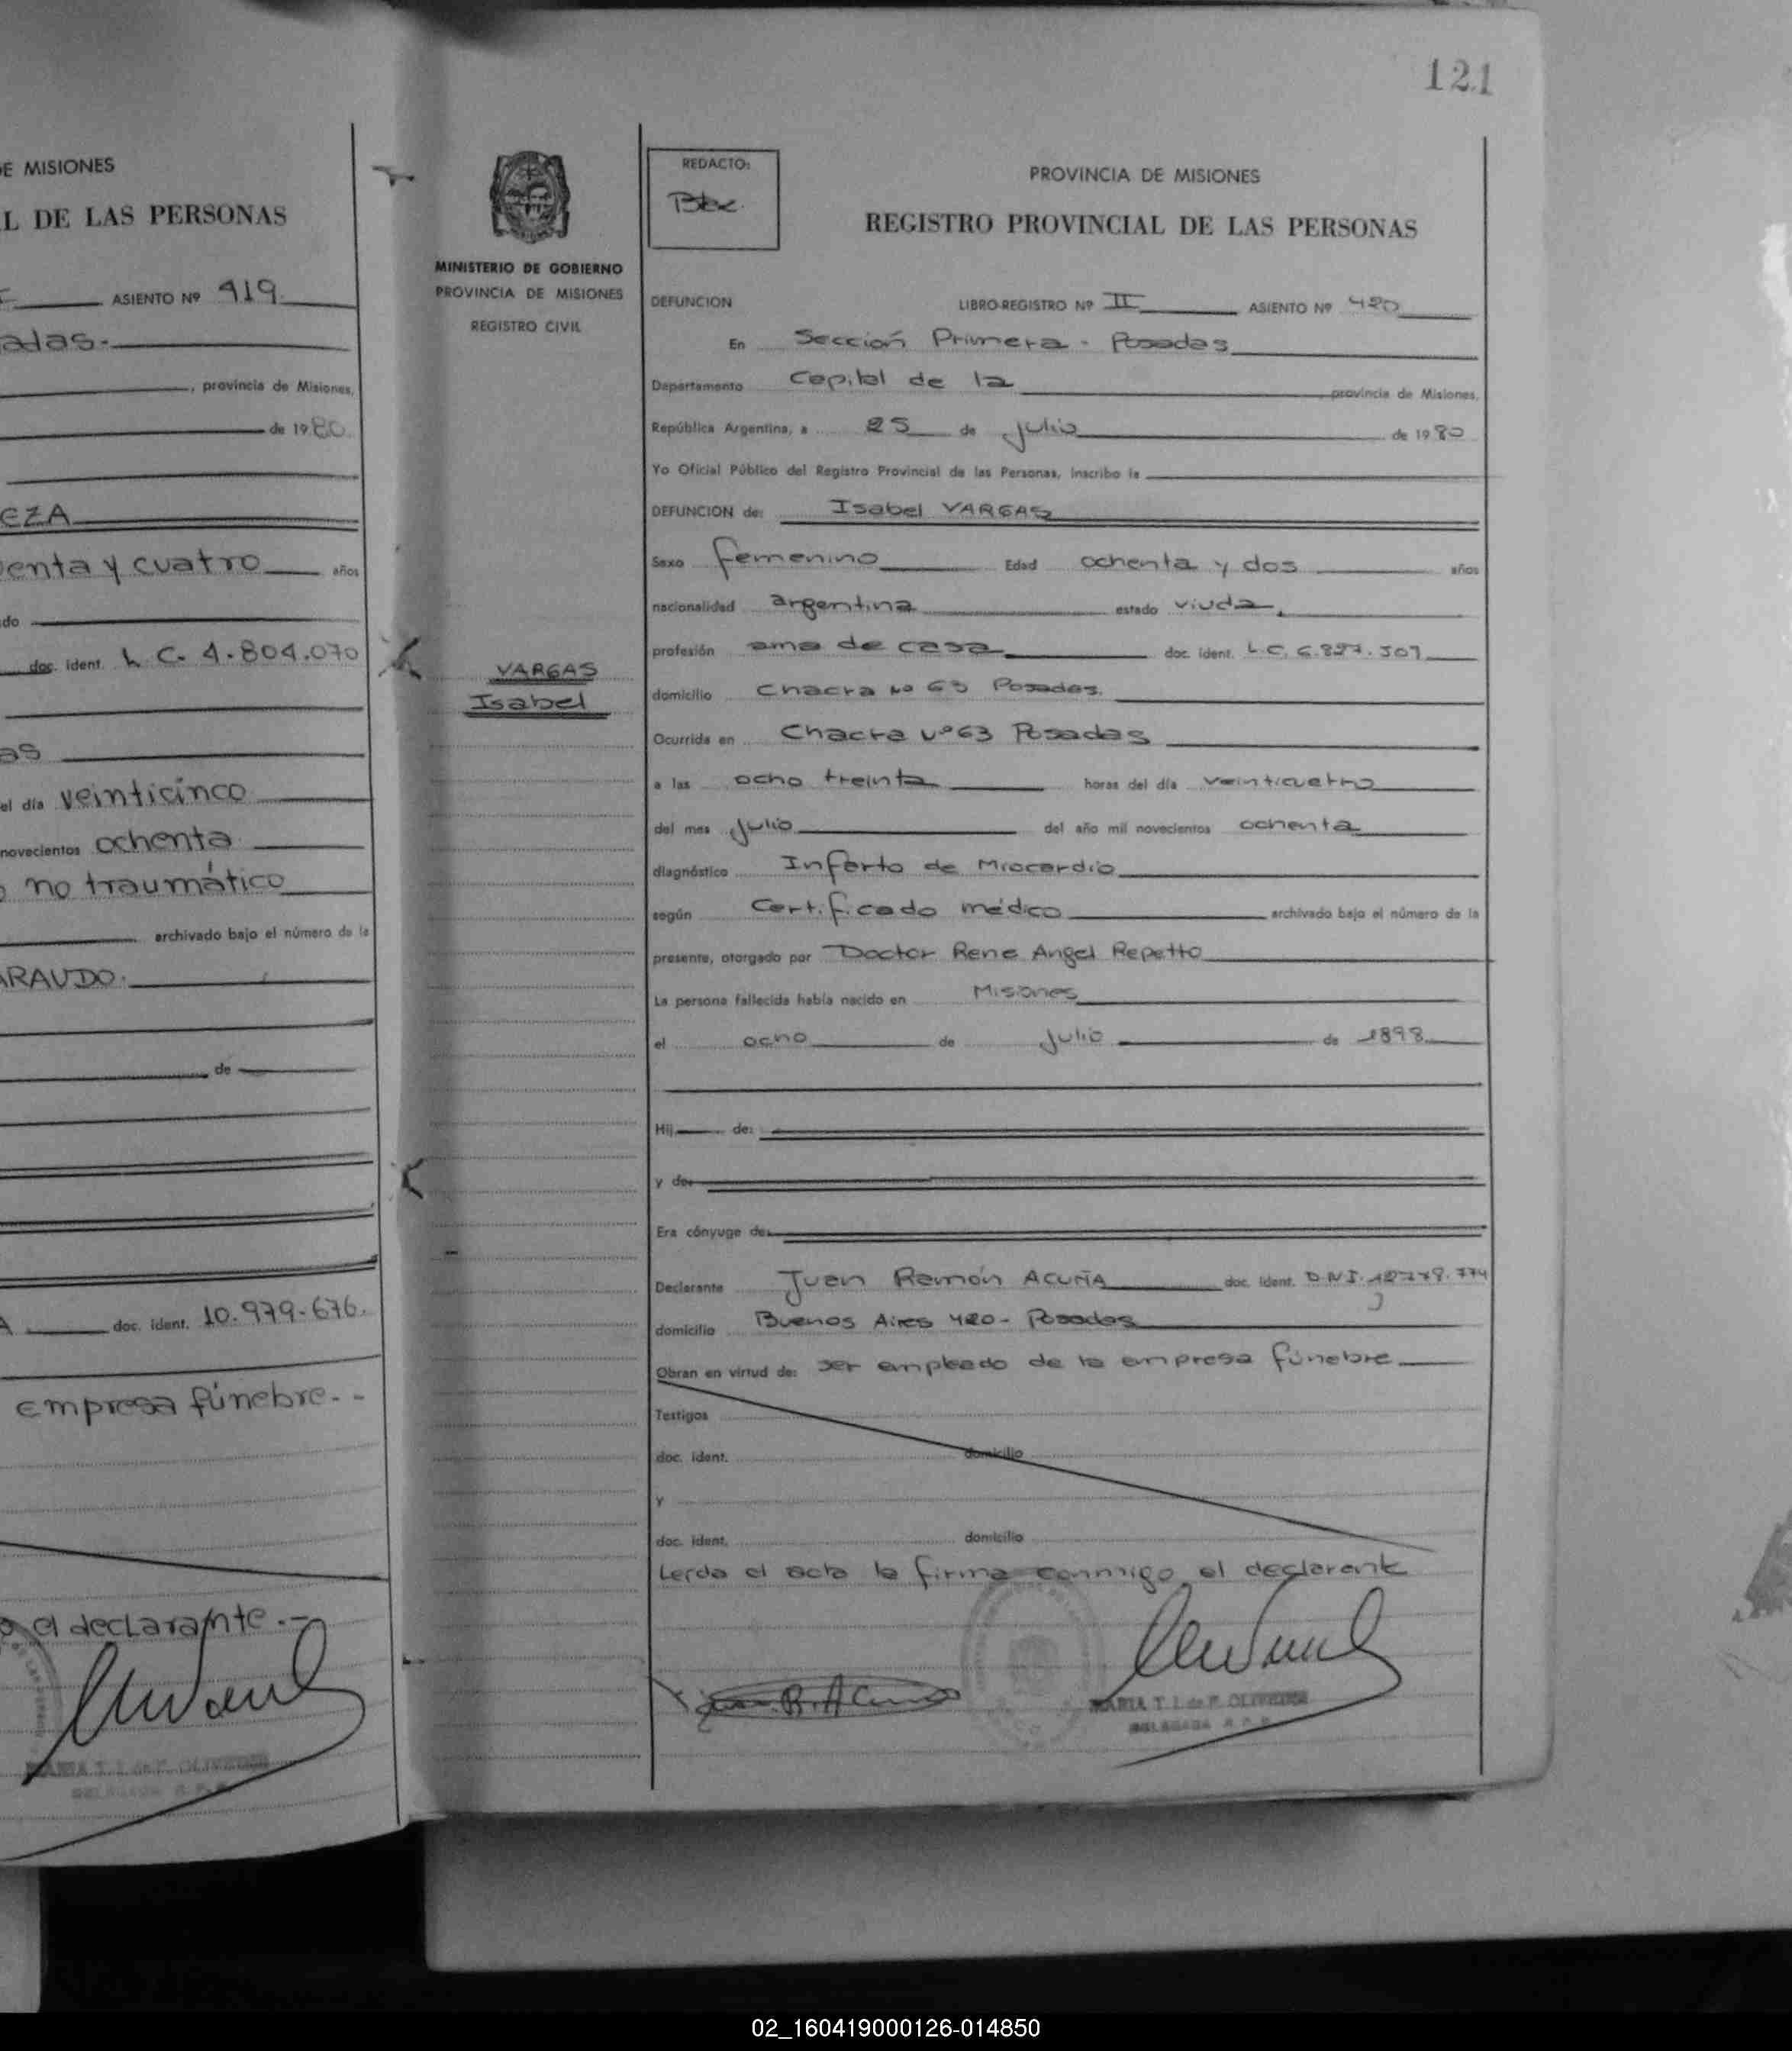 DE MISIONES
L DE LAS PERSONAS
ASIENTO Nº 419
adas.
, provincia de Misiones,
de 1980.
EZA
enta y cuatro años
do
doc. ident. L.C. 4.804.070
as
el día veinticinco
novecientos ochenta
no traumático
archivado bajo el número de la
ARAUDO.
de
doc. ident. 10.979-676.
empresa fúnebre.-
el declarante.-
MARIA T. I. de F. OLIVEIRA
121
MINISTERIO DE GOBIERNO
PROVINCIA DE MISIONES
REGISTRO CIVIL
VARGAS
Isabel
REDACTO:
PROVINCIA DE MISIONES
REGISTRO PROVINCIAL DE LAS PERSONAS
DEFUNCION LIBRO-REGISTRO Nº II ASIENTO Nº 420
En Sección Primera - Posadas
Departamento Capital de la , provincia de Misiones,
República Argentina, a 25 de julio de 1980
Yo Oficial Público del Registro Provincial de las Personas, inscribo la
DEFUNCION de: Isabel VARGAS
Sexo femenino Edad ochenta y dos años
nacionalidad argentina estado viuda.
profesión ama de casa doc. ident. L.C. 6.827.507
domicilio Chacra Nº 63 Posadas.
Ocurrida en Chacra Nº 63 Posadas
a las ocho treinta horas del día veinticuatro
del mes julio del año mil novecientos ochenta
diagnóstico Infarto de Miocardio
según Certificado médico archivado bajo el número de la
presente, otorgado por Doctor Rene Angel Repetto
La persona fallecida había nacido en Misiones
el ocho de julio de 1898
Hij de:
y de:
Era cónyuge de:
Declarante Juan Ramón ACUÑA doc. ident. D.N.I.
domicilio Buenos Aires 420 - Posadas
Obran en virtud de: ser empleado de la empresa fúnebre
Testigos
doc. ident. domicilio
y
doc. ident. domicilio
Leída el acta la firma conmigo el declarante
MARIA T. I. de F. OLIVEIRA
DELEGADA R.P.P.
02_160419000126-014850